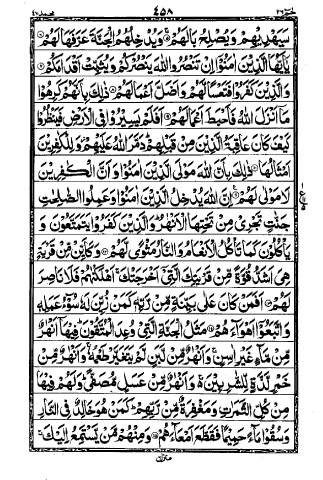 حٰمٓ ٢٦ ٤٥٨ محمد ٤٧
سَيَهْدِيْهِمْ وَيُصْلِحُ بَالَهُمْ ۞ وَيُدْخِلُهُمُ الْجَنَّةَ عَرَّفَهَا لَهُمْ ۞
يٰٓاَيُّهَا الَّذِيْنَ اٰمَنُوْٓا اِنْ تَنْصُرُوا اللّٰهَ يَنْصُرْكُمْ وَيُثَبِّتْ اَقْدَامَكُمْ ۞
وَالَّذِيْنَ كَفَرُوْا فَتَعْسًا لَّهُمْ وَاَضَلَّ اَعْمَالَهُمْ ۞ ذٰلِكَ بِاَنَّهُمْ كَرِهُوْا
مَآ اَنْزَلَ اللّٰهُ فَاَحْبَطَ اَعْمَالَهُمْ ۞ اَفَلَمْ يَسِيْرُوْا فِي الْاَرْضِ فَيَنْظُرُوْا
كَيْفَ كَانَ عَاقِبَةُ الَّذِيْنَ مِنْ قَبْلِهِمْ ۚ دَمَّرَ اللّٰهُ عَلَيْهِمْ ۡ وَلِلْكٰفِرِيْنَ
اَمْثَالُهَا ۞ ذٰلِكَ بِاَنَّ اللّٰهَ مَوْلَى الَّذِيْنَ اٰمَنُوْا وَاَنَّ الْكٰفِرِيْنَ
لَا مَوْلٰى لَهُمْ ۞ اِنَّ اللّٰهَ يُدْخِلُ الَّذِيْنَ اٰمَنُوْا وَعَمِلُوا الصّٰلِحٰتِ
جَنّٰتٍ تَجْرِيْ مِنْ تَحْتِهَا الْاَنْهٰرُ ۭ وَالَّذِيْنَ كَفَرُوْا يَتَمَتَّعُوْنَ وَ
يَاْكُلُوْنَ كَمَا تَاْكُلُ الْاَنْعَامُ وَالنَّارُ مَثْوًى لَّهُمْ ۞ وَكَاَيِّنْ مِّنْ قَرْيَةٍ
هِيَ اَشَدُّ قُوَّةً مِّنْ قَرْيَتِكَ الَّتِيْٓ اَخْرَجَتْكَ ۚ اَهْلَكْنٰهُمْ فَلَا نَاصِرَ
لَهُمْ ۞ اَفَمَنْ كَانَ عَلٰى بَيِّنَةٍ مِّنْ رَّبِّهٖ كَمَنْ زُيِّنَ لَهٗ سُوْٓءُ عَمَلِهٖ
وَاتَّبَعُوْٓا اَهْوَآءَهُمْ ۞ مَثَلُ الْجَنَّةِ الَّتِيْ وُعِدَ الْمُتَّقُوْنَ ۭ فِيْهَآ اَنْهٰرٌ
مِّنْ مَّآءٍ غَيْرِ اٰسِنٍ ۚ وَاَنْهٰرٌ مِّنْ لَّبَنٍ لَّمْ يَتَغَيَّرْ طَعْمُهٗ ۚ وَاَنْهٰرٌ مِّنْ
خَمْرٍ لَّذَّةٍ لِّلشّٰرِبِيْنَ ۚ وَاَنْهٰرٌ مِّنْ عَسَلٍ مُّصَفًّى ۭ وَلَهُمْ فِيْهَا
مِنْ كُلِّ الثَّمَرٰتِ وَمَغْفِرَةٌ مِّنْ رَّبِّهِمْ ۭ كَمَنْ هُوَ خَالِدٌ فِي النَّارِ
وَسُقُوْا مَآءً حَمِيْمًا فَقَطَّعَ اَمْعَآءَهُمْ ۞ وَمِنْهُمْ مَّنْ يَّسْتَمِعُ اِلَيْكَ ۚ